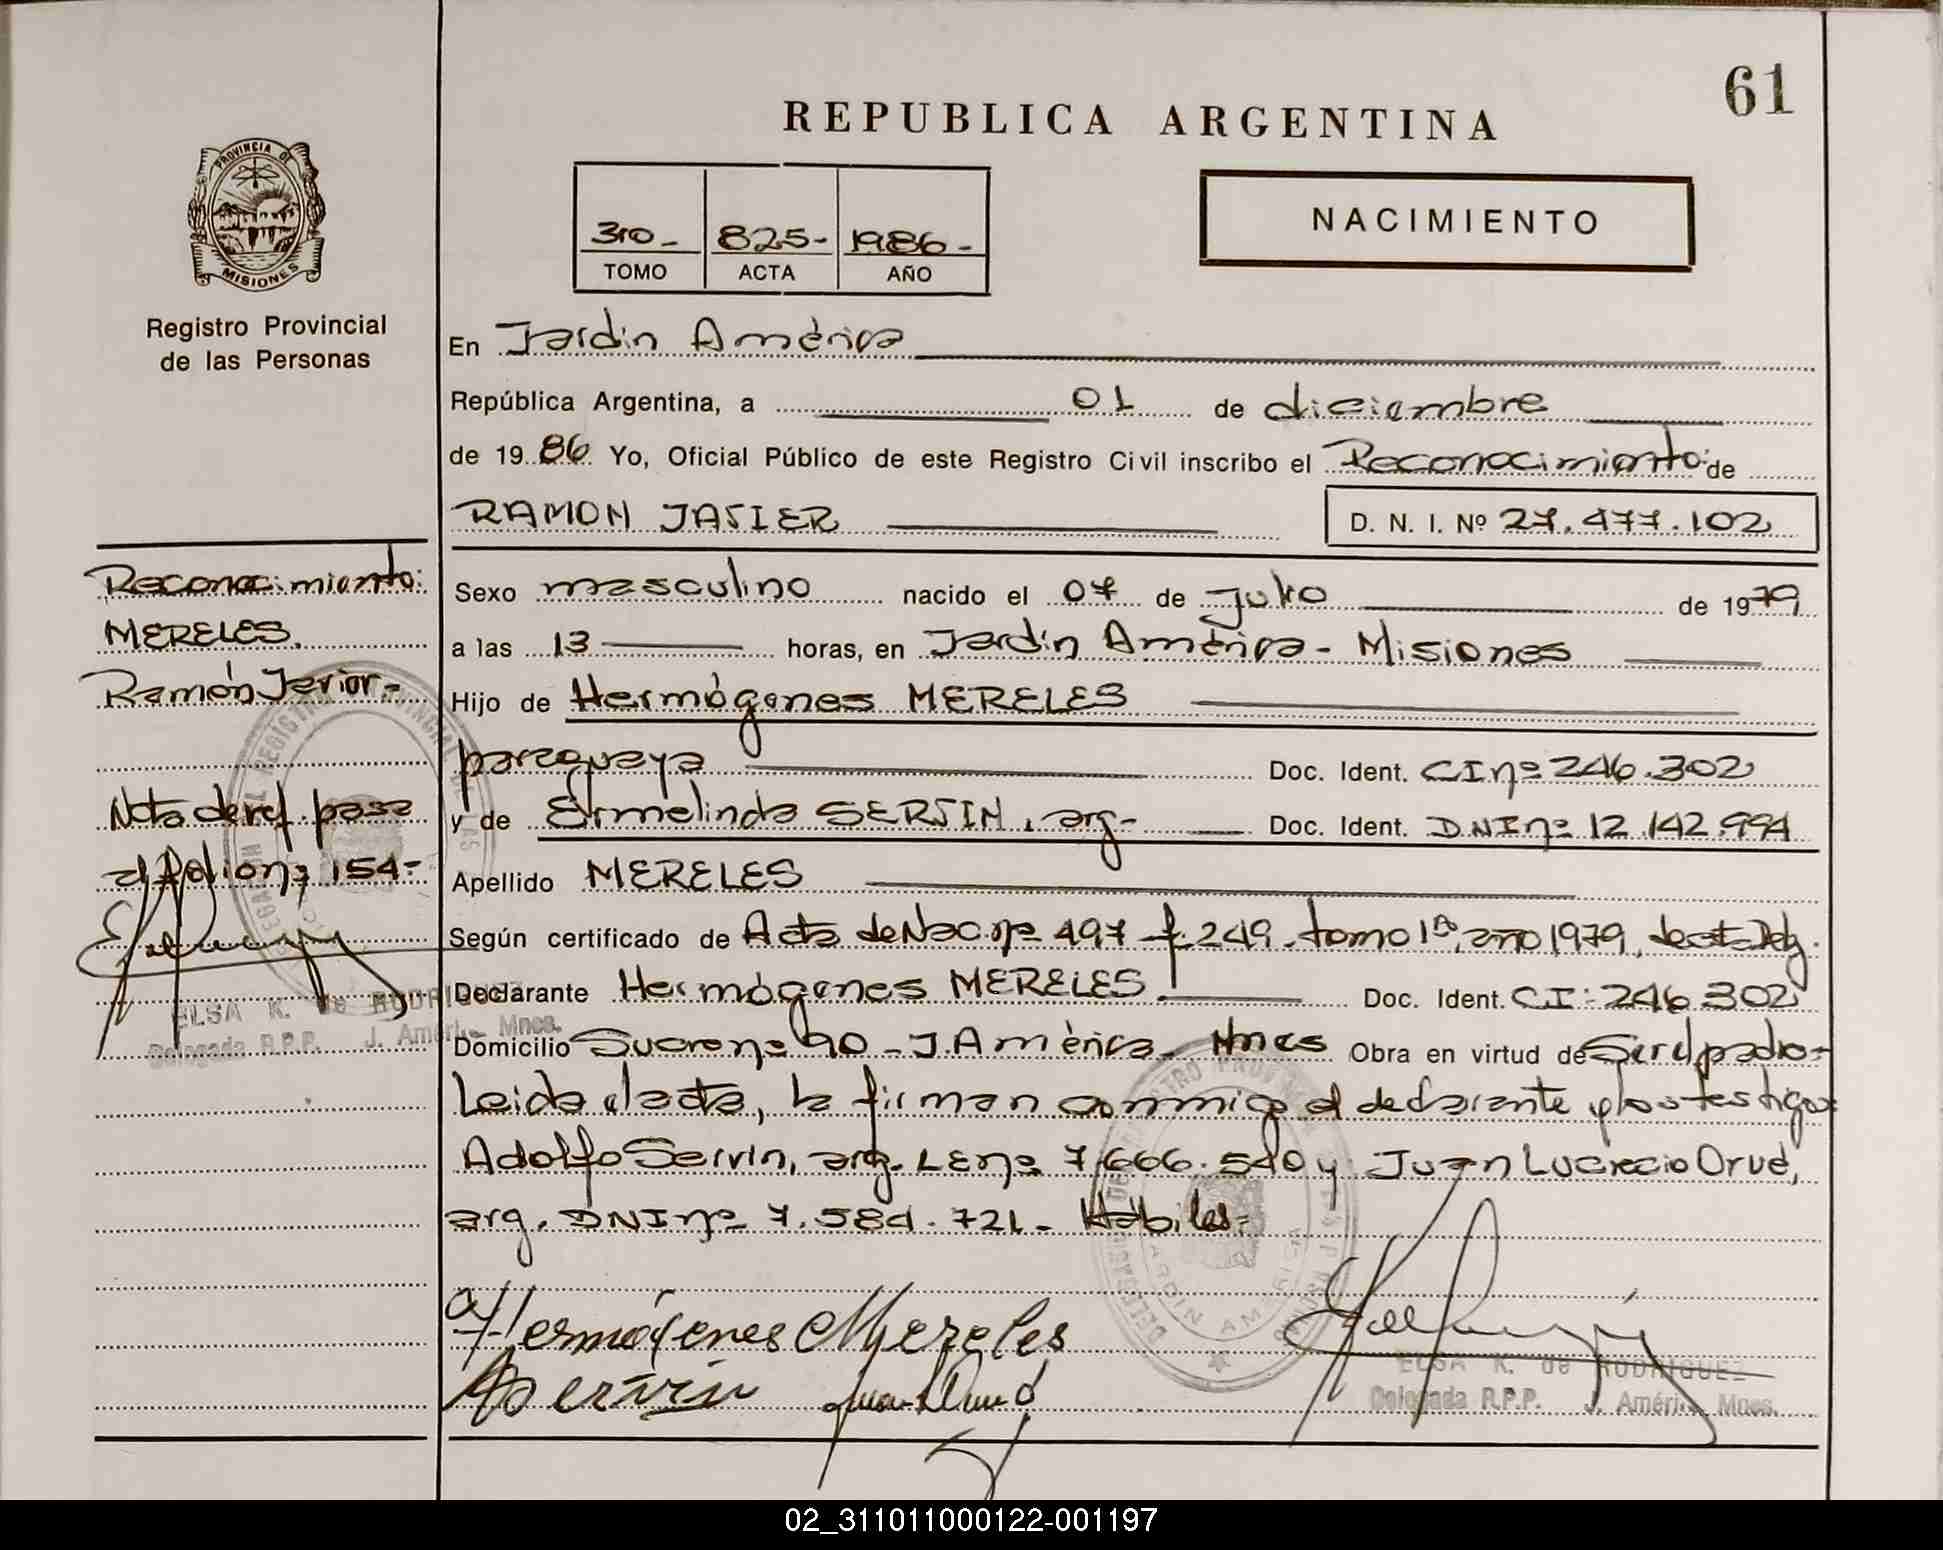 61
REPUBLICA ARGENTINA
PROVINCIA DE
MISIONES
Registro Provincial
de las Personas
3ro- 825- 1986-
TOMO ACTA AÑO
NACIMIENTO
En Jardin América
República Argentina, a 01 de diciembre
de 1986 Yo, Oficial Público de este Registro Civil inscribo el Reconocimiento de
RAMON JAVIER
D. N. I. Nº 27.477.102
Reconocimiento:
MERELES.
Ramón Javier-
Nota de ref. pasa
al folio nº 154-
ELSA K. de RODRIGUEZ
Delegada R.P.P. J. Améri. Mnes.
Sexo masculino nacido el 07 de Julio de 1979
a las 13 horas, en Jardin América - Misiones
Hijo de Hermógenes MERELES
paraguaya Doc. Ident. CI nº 246.302
y de Ermelinda SERVIN, arg- Doc. Ident. DNI nº 12.142.994
Apellido MERELES
Según certificado de Acta de Nac nº 497 f. 249. tomo 1ro, año 1979, de esta Del.
Declarante Hermógenes MERELES Doc. Ident. CI: 246.302
Domicilio Sucre nº 90 - J. América - Mnes Obra en virtud de Ser el padre-
Leida el acta, la firman conmigo el declarante y los testigos
Adolfo Servin, arg. LE nº 7.666.540 y Juan Lucrecio Orué,
arg. DNI nº 7.584.721- Hábiles-
Hermógenes Mereles
A Servin Juan L Orué
ELSA K. de RODRIGUEZ
Delegada R.P.P. J. Améri. Mnes.
02_311011000122-001197